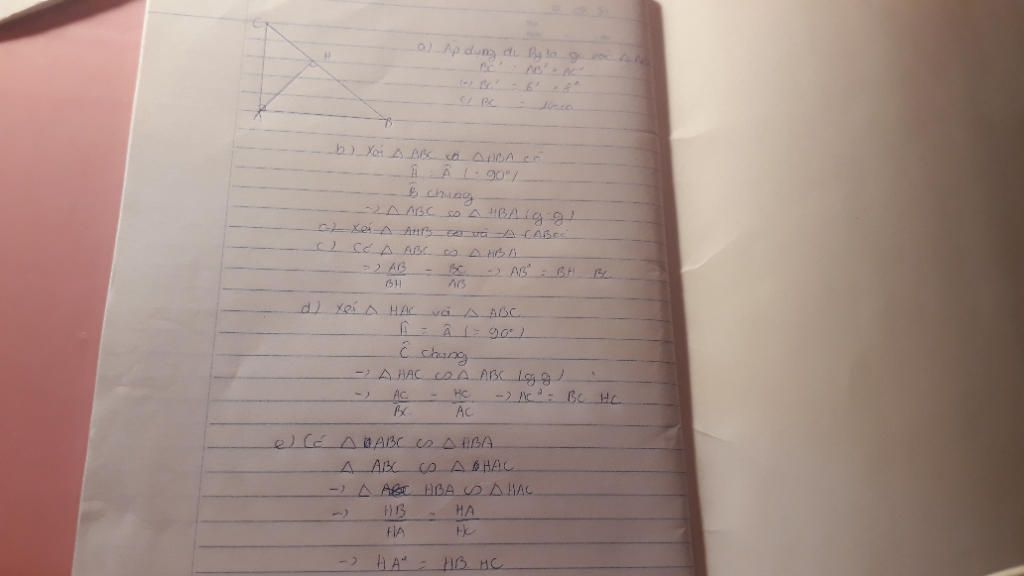 C
H
A
B
a) Áp dụng đl Pytago vào △ABC
BC² = AB² + AC²
BC² = 6² + 8²
BC = 10cm
b) Xét △ ABC và △HBA có
Ĥ = Â (= 90°)
B̂ chung
→ △ ABC ∽ △ HBA (g.g)
c) Xét △ AHB ∽ và △ CAB có
c) Có △ ABC ∽ △ HBA
=> AB/BH = BC/AB → AB² = BH BC
d) Xét △ HAC và △ ABC
Ĥ = Â (= 90°)
Ĉ chung
→ △ HAC ∽ △ ABC (g.g)
→ AC/BC = HC/AC → AC² = BC HC
e) Có △ ABC ∽ △ HBA
△ ABC ∽ △ HAC
→ △ HBA ∽ △ HAC
→ HB/HA = HA/HC
→ HA² = HB HC